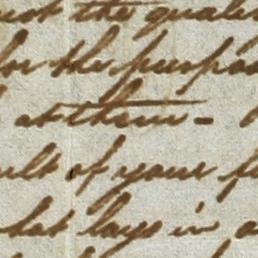 the quali
for the purpos
at them -
ult of your f
hat lays in a